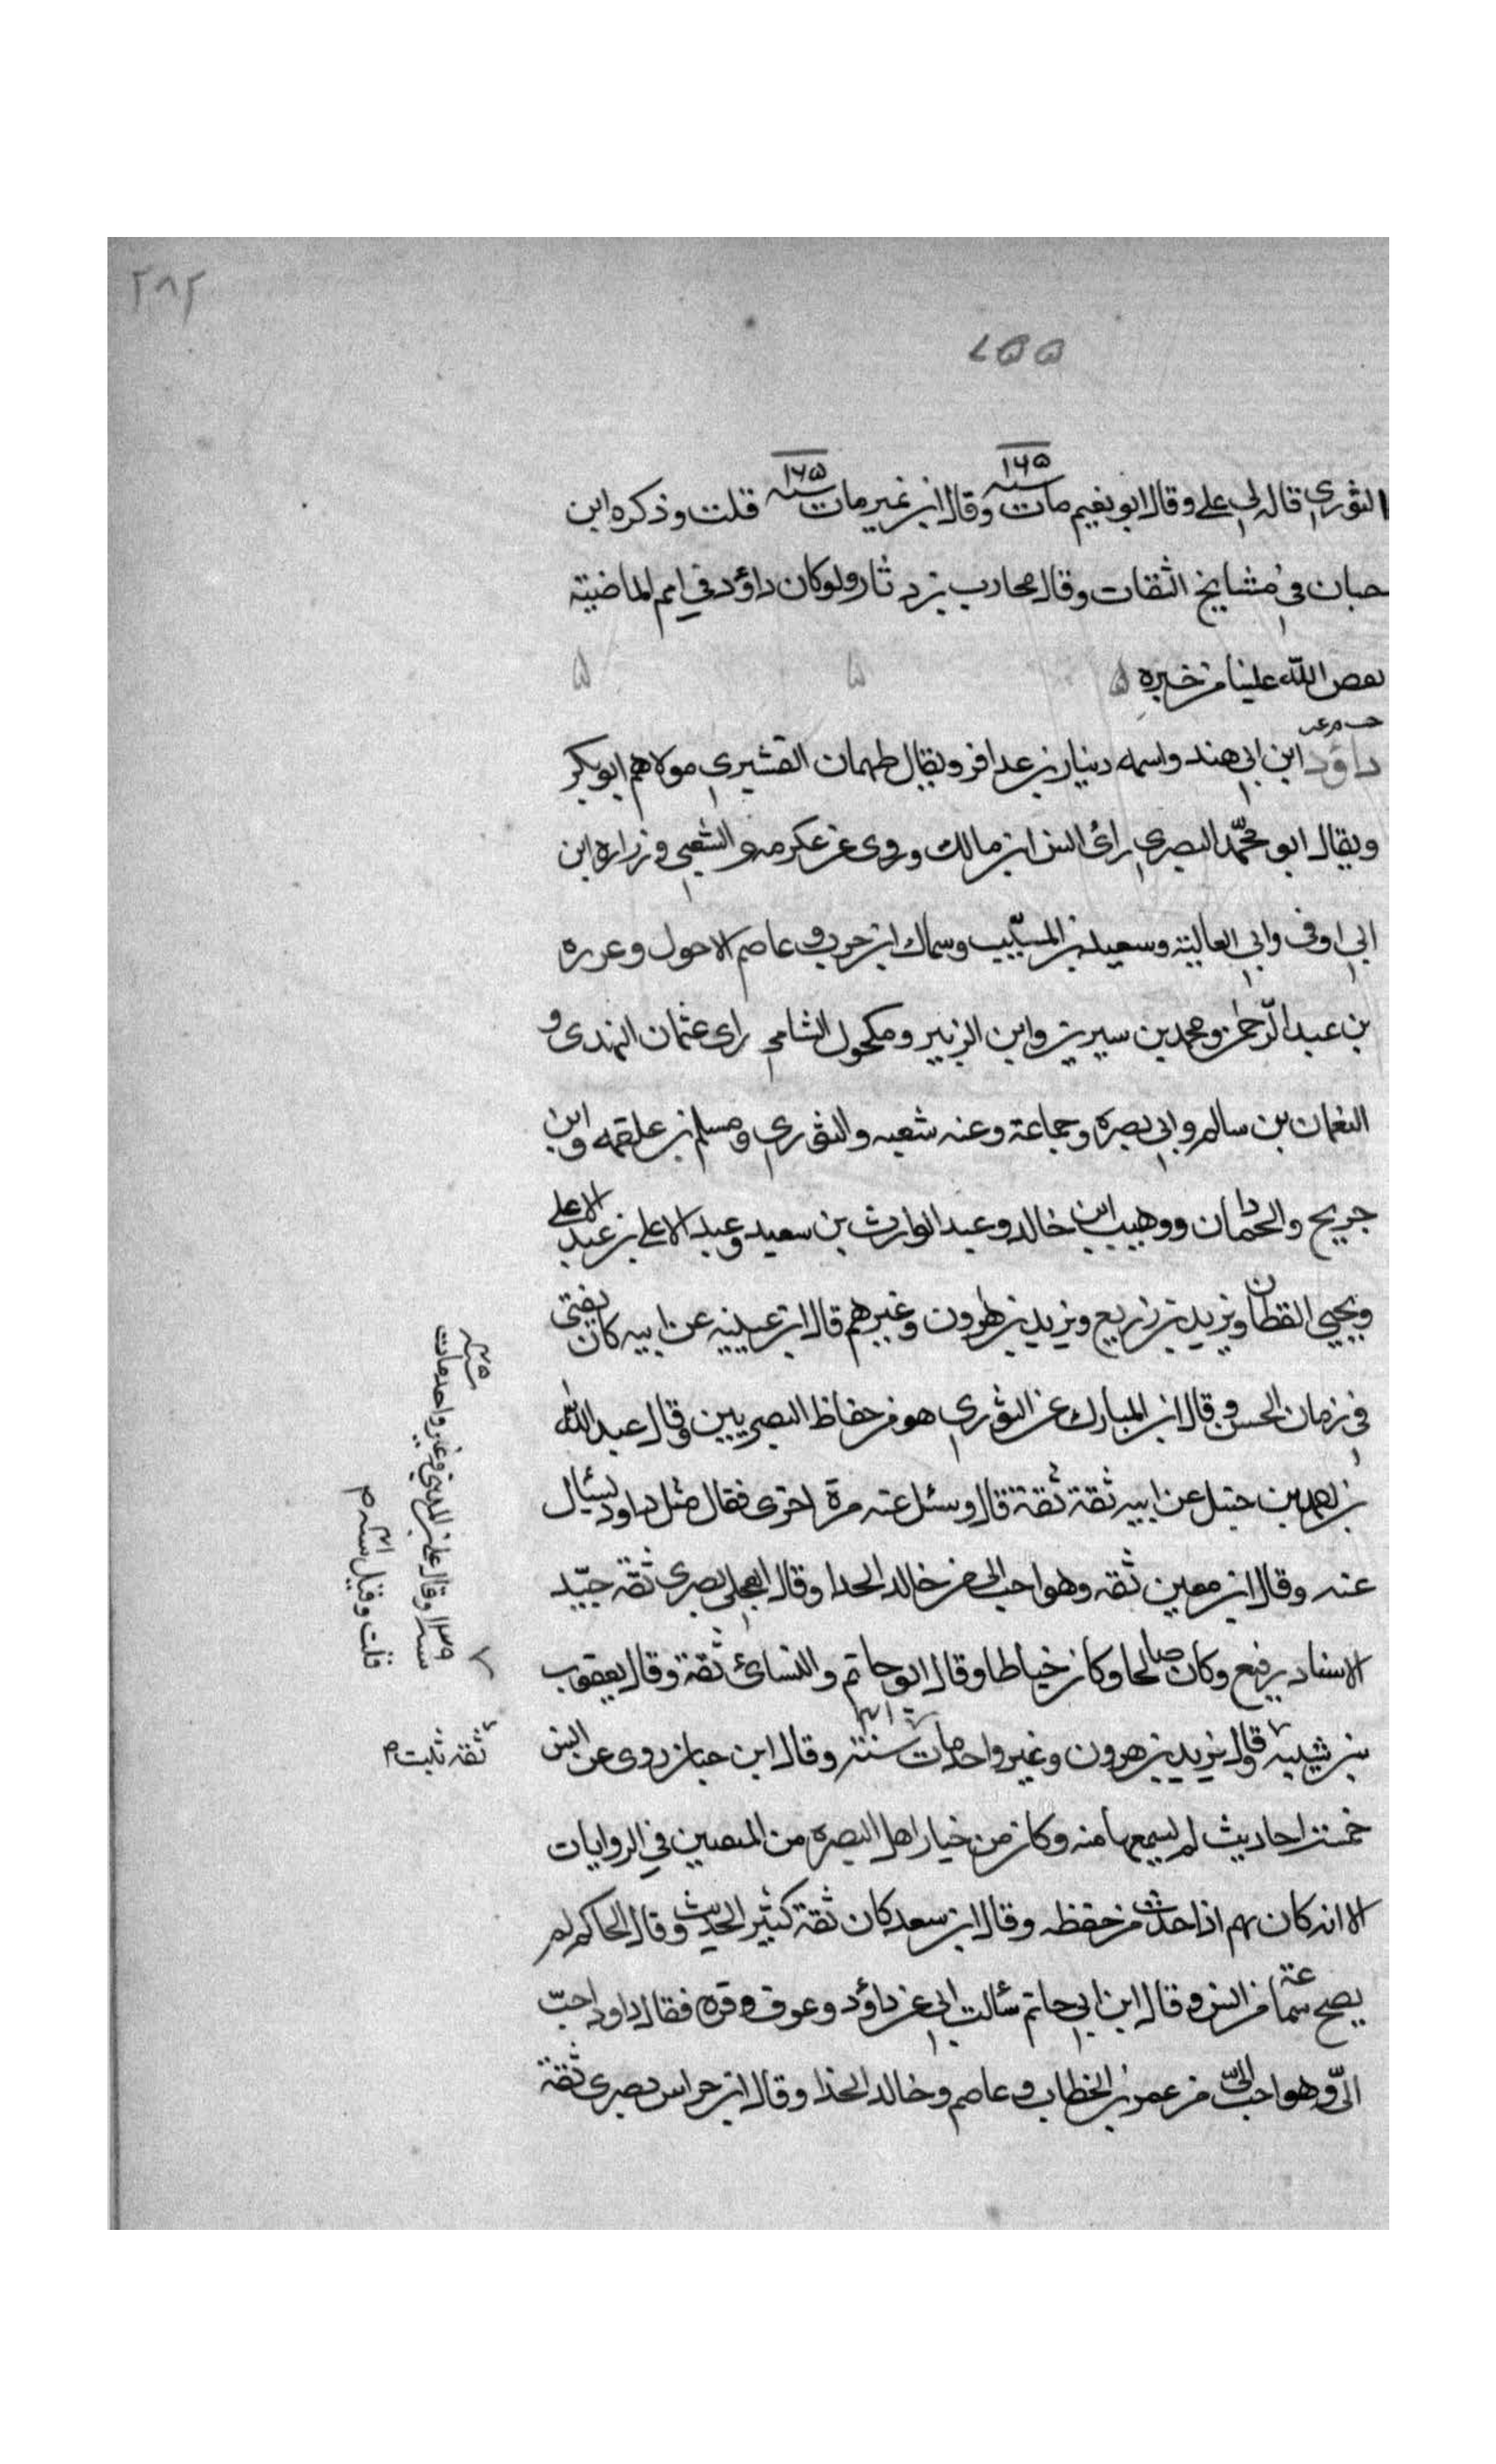 ٢٨٢
٧۵۵
الثوري قاله لي علي وقال ابو نعيم مات سنه ١٦۵ وقال ابن نمير مات سنه ١٦۵ قلت وذكره ابن
حبان في مشايخ الثقات وقال محارب بن دثار ولو كان داؤد في امم الماضية
لقص الله علينا من خبره
داؤد ابن ابي هند واسمه دينار بن عذافر ويقال طهمان القشيري مولاهم ابو بكر
ويقال ابو محمد البصري رائ انس ابن مالك وروى عن عكرمه والشعبي وزراره ابن
ابي اوفى وابي العالية وسعيد بن المسيب وسماك ابن حرب وعاصم الاحول وعزره
بن عبد الرحمن ومحمد بن سيرين وابن الزبير ومكحول الشامي راى عثمان النهدى و
النعمان بن سالم وابي بصره وجماعة وعنه شعبه والثوري ومسلم بن علقمه وابن
جريح والحمادان ووهيب ابن خالد وعبد الوارث بن سعيد وعبد الاعلى بن عبد الاعلى
ويحيي القطان ويزيد بن زريع ويزيد بن هرون وغيرهم قال ابن عيينه عن ابيه كان يفتى
في زمان الحسن وقال ابن المبارك عن الثوري هو من حفاظ البصريين وقال عبد الله
بن احمد بن حنبل عن ابيه ثقة ثقة قال وسئل عنه مرة اخرى فقال مثل داود يسئال
عنه وقال ابن معين ثقه وهو احب الي من خالد الحدا وقال العجلي بصري ثقه جيّد
الاسناد رفيع وكان صالحا وكان خياطا وقال ابو حاتم والنسائ ثقة وقال يعقوب
بن شيبه وقال يزيد بن هرون وغير واحد مات سنة وقال ابن حبان روى عن انس
خمسة احاديث لم يسمعها منه وكان من خيار اهل البصره من المتقنين في الروايات
الا انه كان يهم اذا حدث من حفظه وقال ابن سعد كان ثقة كثير الحديث وقال الحاكم لم
يصح سماعة من انس وقال ابن ابي حاتم سئالت ابي عن داؤد وعوف وقره فقال داود احبّ
الىّ وهو احب اليّ من عمر بن الخطاب وعاصم وخالد الحذا وقال ابن خراش بصرى ثقة
سنه ١٣٩ وقال علي بن المديني وغير واحد مات سنه
قلت وقيل سنه م
ثقه ثبت م